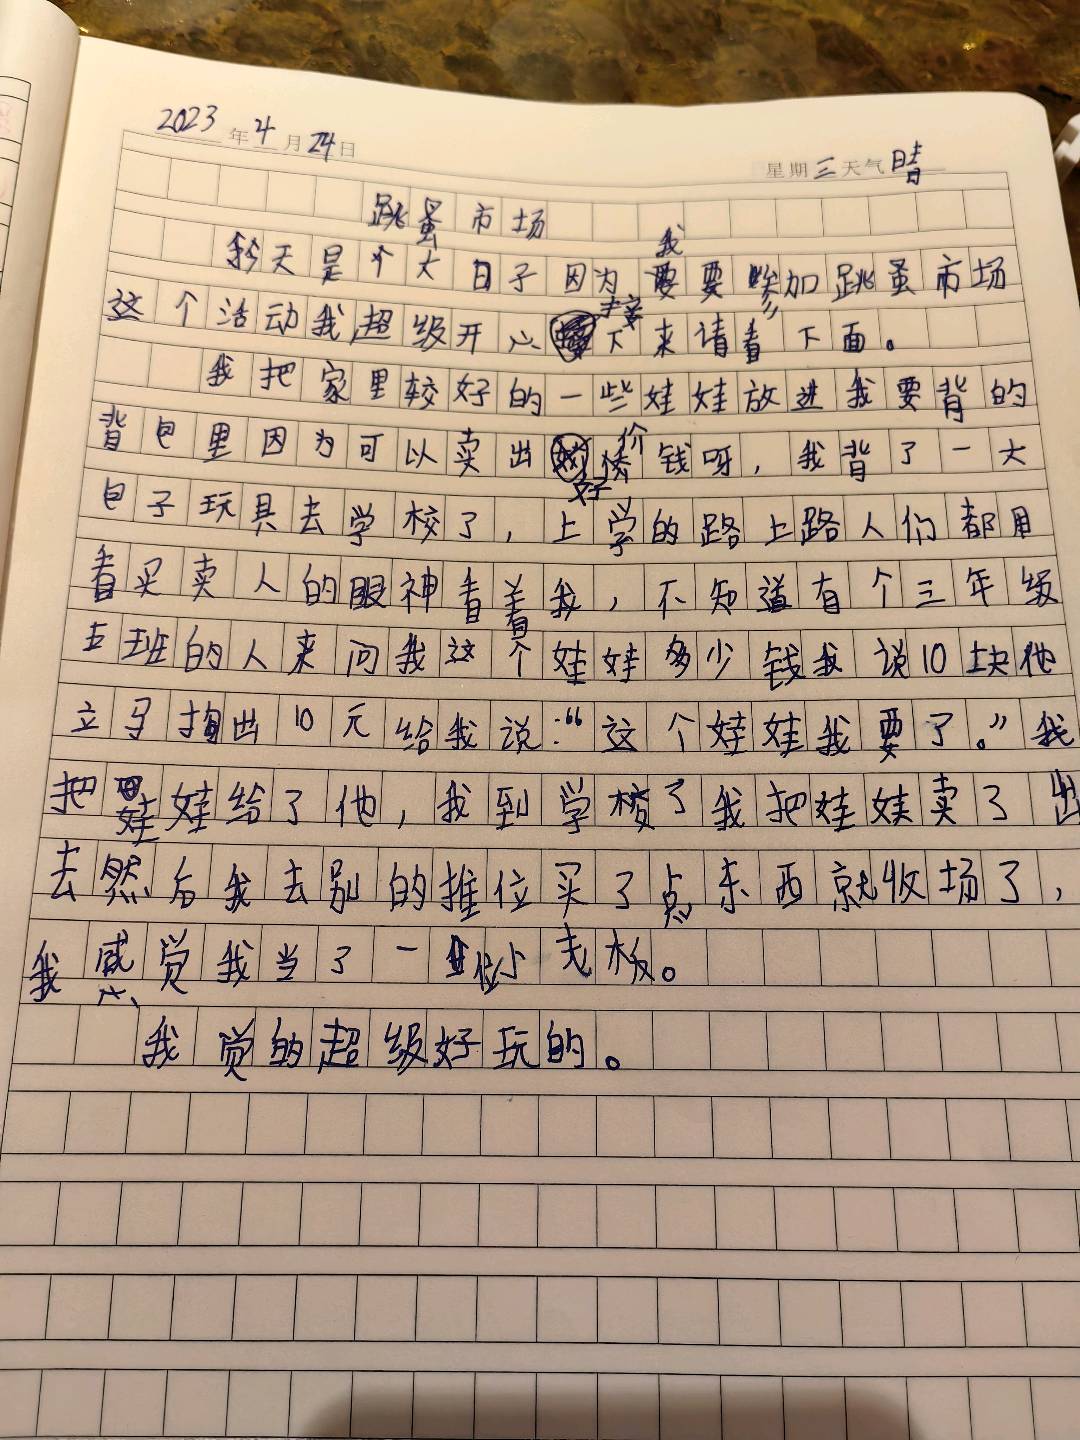 2023年4月24日
星期三天气晴
跳蚤市场
今天是个大日子因为我要要参加跳蚤市场
这个活动我超级开心接下来请看下面。
我把家里较好的一些娃娃放进我要背的
背包里因为可以卖出好价钱呀，我背了一大
包子玩具去学校了，上学的路上路人们都用
看买卖人的眼神看着我，不知道有个三年级
五班的人来问我这个娃娃多少钱我说10块他
立马掏出10元给我说：“这个娃娃我要了。”我
把娃娃给了他，我到学校了我把娃娃卖了出
去然后我去别的推位买了点东西就收场了，
我感觉我当了一位小老板。
我觉的超级好玩的。